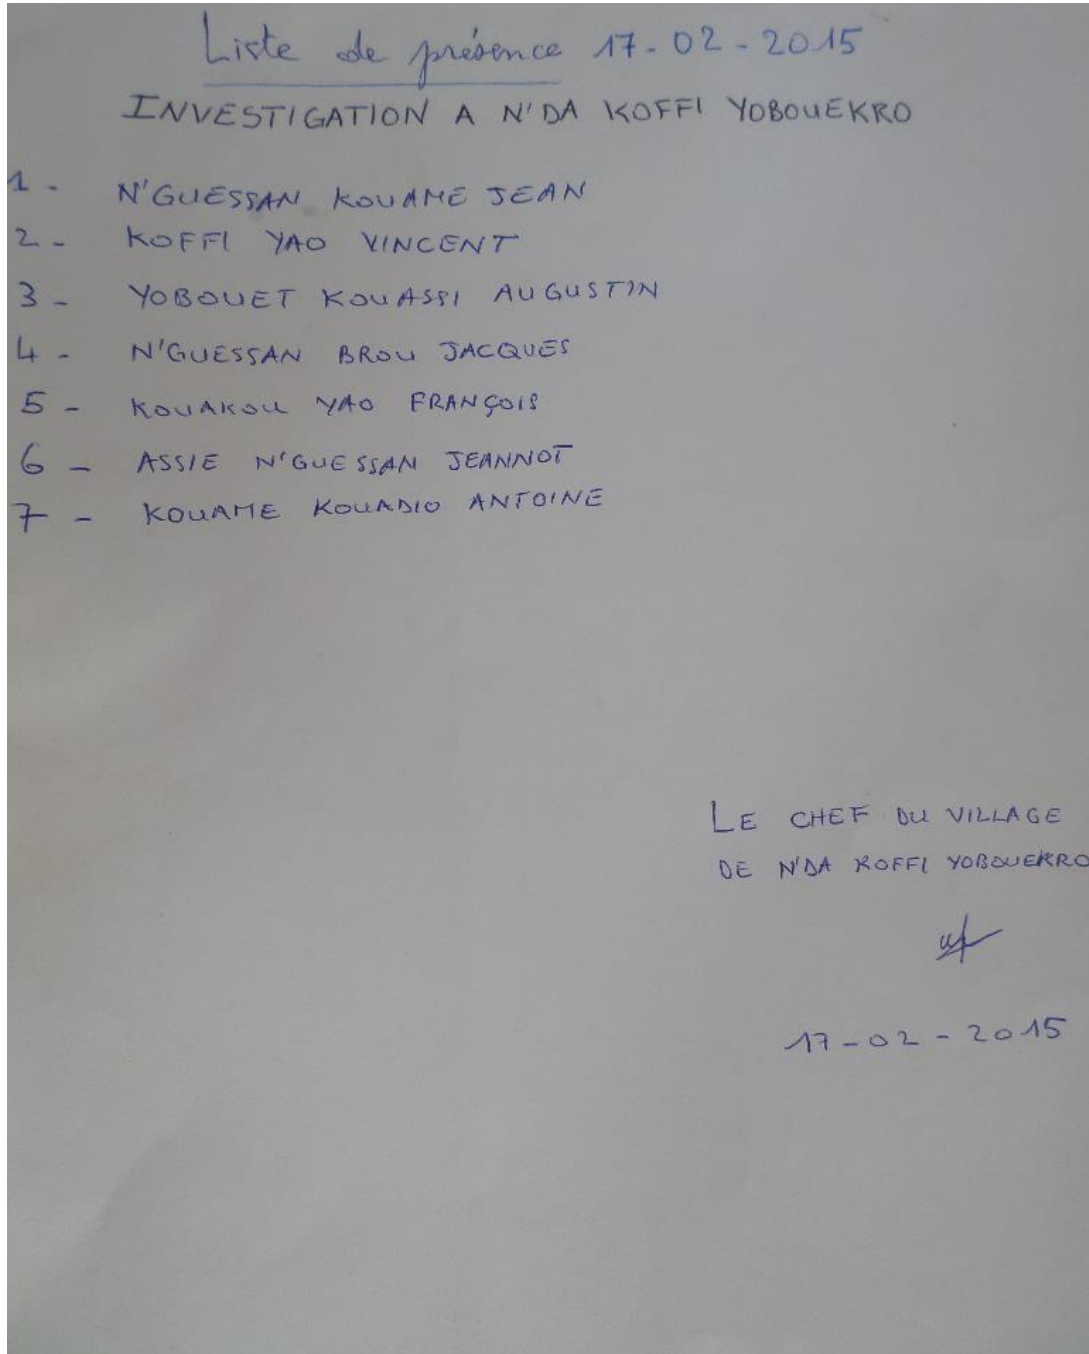 Liste de présence 17-02-2015
INVESTIGATION A N'DA KOFFI YOBOUEKRO
1- N'GUESSAN KOUAME JEAN
2- KOFFI YAO VINCENT
3- YOBOUET KOUASSI AUGUSTIN
4- N'GUESSAN BROU JACQUES
5- KOUAKOU YAO FRANÇOIS
6- ASSIE N'GUESSAN JEANNOT
7- KOUAME KOUADIO ANTOINE
LE CHEF DU VILLAGE
DE N'DA KOFFI YOBOUEKRO
17-02-2015